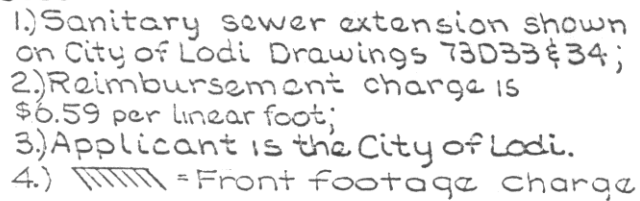 1.) Sanitary sewer extension shown
on City of Lodi Drawings 73D33 & 34;
2.) Reimbursement charge is
$6.59 per linear foot;
3.) Applicant is the City of Lodi.
4.) = Front footage charge